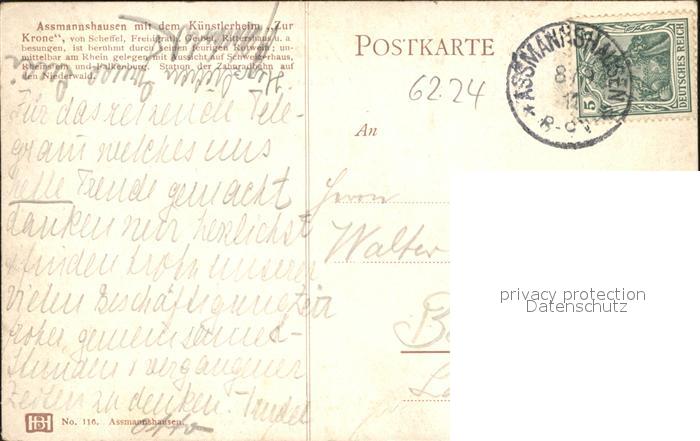 Assmannshausen mit dem Künstlerheim „Zur
Krone“, von Scheffel, Freiligrath, Geibel, Rittershaus u. a
besungen, ist berühmt durch seinen feurigen Rotwein; un-
mittelbar am Rhein gelegen mit Aussicht auf Schweizerhaus,
Rheinstein und Falkenburg. Station der Zahnradbahn auf
den Niederwald.
POSTKARTE
62.24
ASSMANNSHAUSEN
DEUTSCHES REICH
5
An
Für das reizende Tele-
gram welches uns
helle Freude gemacht
danken wir herzlichst
finden trotz unserer
vielen Beschäftigung
gemeinsamer
Stunden vergangener
Zeiten zu denken.
Otto
Herrn
Walter
B
privacy protection
Datenschutz
HB
No. 116. Assmannshausen.